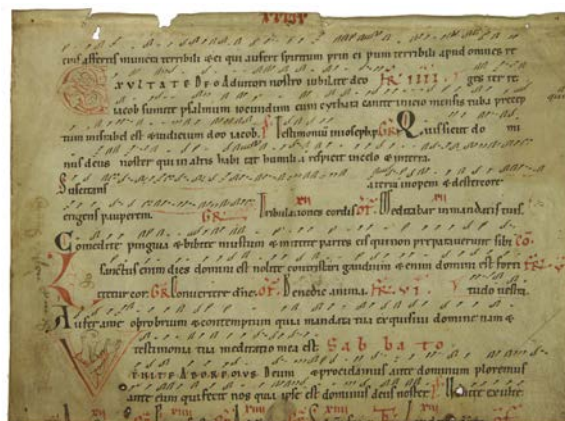 tris affertis munera terribili & ei qui aufert spiritum prin ci pum terribili apud omnes re
EXULTATE DEO adiutori nostro iubilate deo FR IIII ges terre
iacob sumite psalmum iocundum cum cythara canite inicio mensis tuba precep
tum inisrahel est & iudicium deo iacob Testimoniū inioseph GR Quis sicut do mi
nus deus noster qui in altis habi tat humilia respicit incelo & interra
Suscitans aterra inopem & destercore
erigens pauperem GR Tribulationes cordis OF Meditabar inmandatis tuis
Comedite pinguia & bibite mustum & mittite partes eis qui non preparaverunt sibi CO
sanctus enim dies domini est nolite contristari gaudium & enim domini est forti
tetur cor GR Convertere dñe OF Benedic anima FR VI tudo vestra
Auferame obprobrium & contemptum quia mandata tua exquisivi domine nam &
testimonia tua meditatio mea est Sabbato
VENITE ADOREMUS Deum & procidamus ante dominum ploremus
ante eum qui fecit nos quia ipse est dominus deus noster